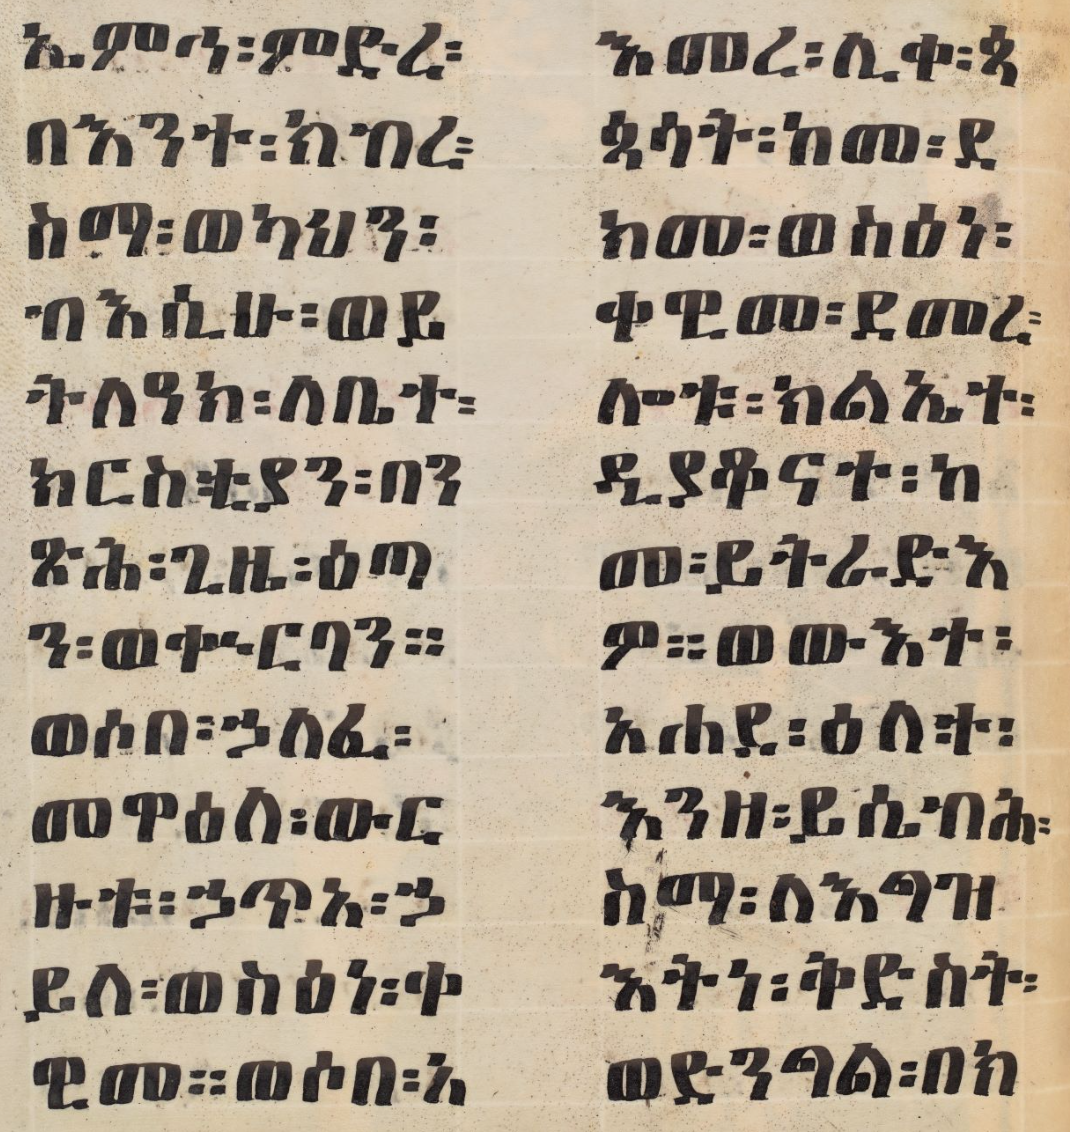 ኢምሳ፡ምድረ፡
በእንተ፡ክብረ፡
ስማ፡ወካህን፡
ብእሲሁ፡ወይ
ትለዓክ፡ለቤተ፡
ክርስቲያን፡በን
ጽሕ፡ጊዜ፡ዕጣ
ን፡ወቍርባን።
ወሶበ፡ኃለፈ፡
መዋዕለ፡ውር
ዙቱ፡ኃጥአ፡ኃ
ይለ፡ወስዕነ፡ቀ
ዊመ።ወሶበ፡አ
እመረ፡ሊቀ፡ጳ
ጳሳት፡ከመ፡ደ
ክመ፡ወስዕነ፡
ቀዊመ፡ደመረ፡
ሎቱ፡ክልኤተ፡
ዲያቆናተ፡ከ
መ፡ይትራድእ
ዎ።ወውእተ፡
አሐደ፡ዕለተ፡
እንዘ፡ይሴብሕ፡
ስማ፡ለእግዝ
እትነ፡ቅድስት፡
ወድንግል፡በክ